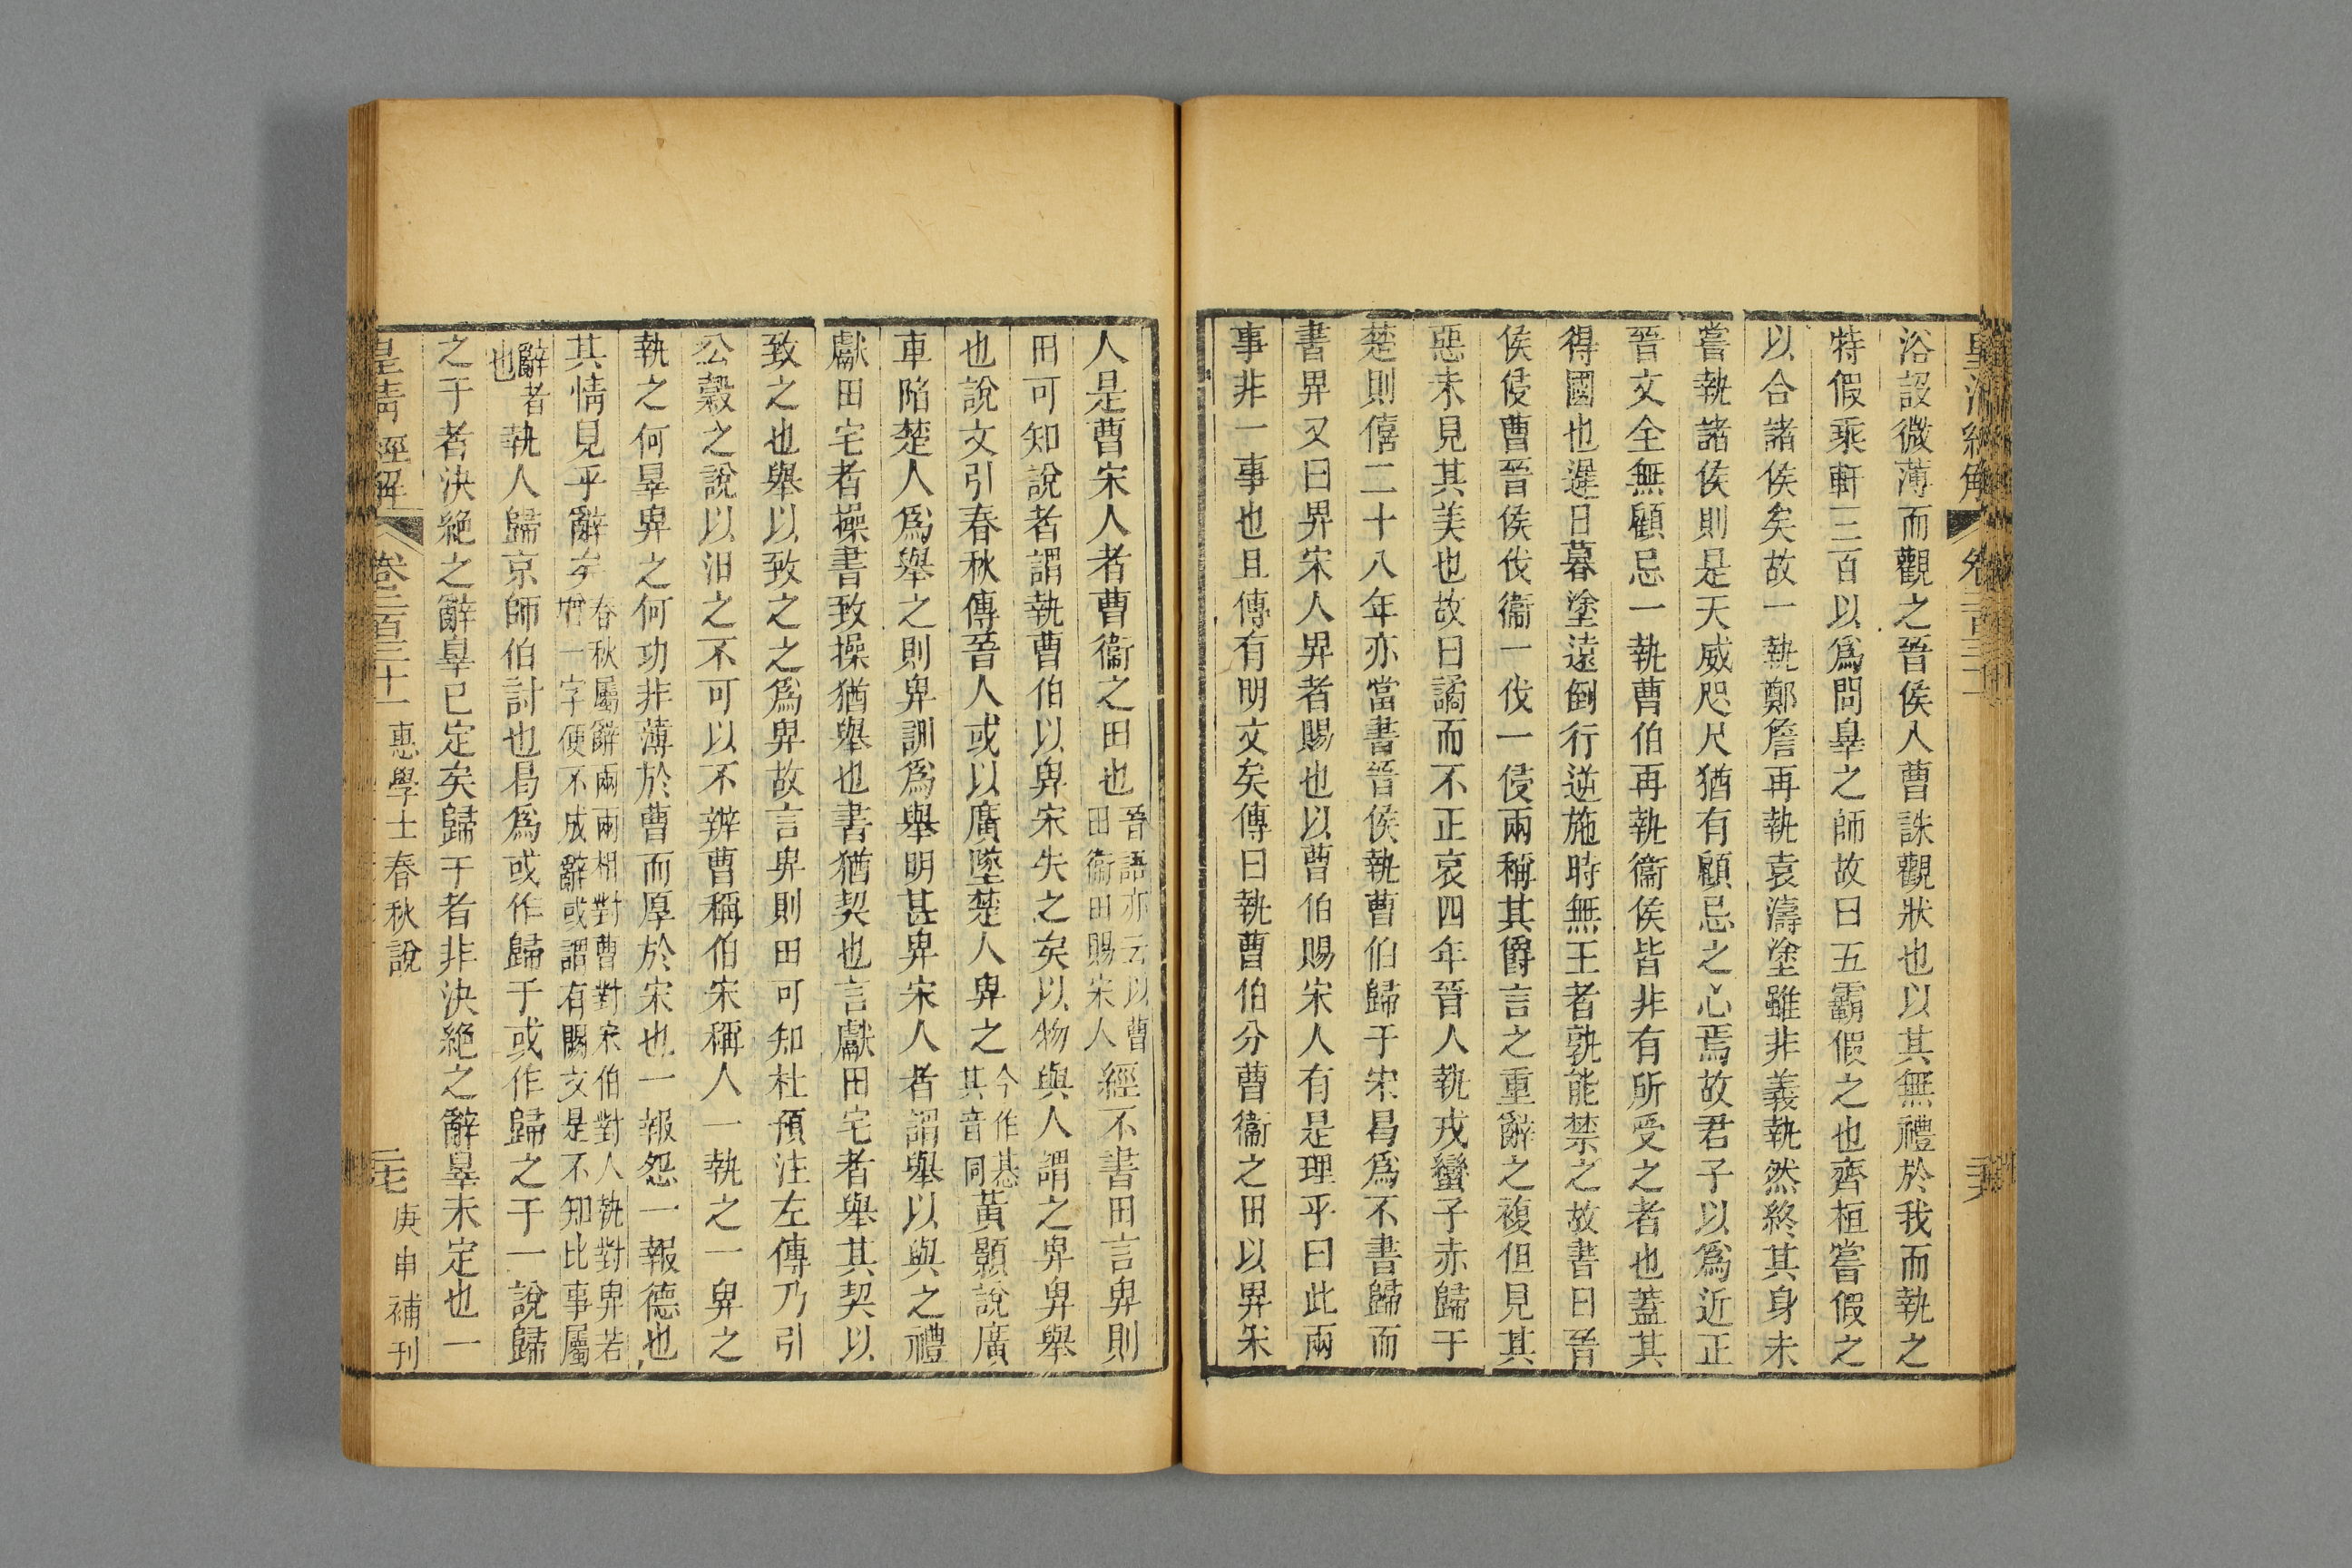 浴設微薄而觀之晉侯入曹誅觀狀也以其無禮於我而執之
特假乘軒三百以爲問辠之師故曰五霸假之也齊桓嘗假之
以合諸侯矣故一執鄭詹再執袁濤塗雖非義執然終其身未
嘗執諸侯則是天威咫尺猶有顧忌之心焉故君子以爲近正
晉文全無顧忌一執曹伯再執衞侯皆非有所受之者也蓋其
得國也遲日暮塗遠倒行逆施時無王者孰能禁之故書曰晉
侯侵曹晉侯伐衞一伐一侵兩稱其爵言之重辭之複但見其
惡未見其美也故曰譎而不正哀四年晉人執戎蠻子赤歸于
楚則僖二十八年亦當書晉侯執曹伯歸于宋曷爲不書歸而
書畀又曰畀宋人畀者賜也以曹伯賜宋人有是理乎曰此兩
事非一事也且傳有明文矣傳曰執曹伯分曹衞之田以畀宋
人是曹宋人者曹衞之田也晉語亦云以曹田衞田賜宋人經不書田言畀則
田可知說者謂執曹伯以畀宋失之矣以物與人謂之畀畀舉
也說文引春秋傳晉人或以廣墜楚人畀之今作惎其音同黃顥說廣
車陷楚人爲舉之則畀訓爲舉明甚畀宋人者謂舉以與之禮
獻田宅者操書致操猶舉也書猶契也言獻田宅者舉其契以
致之也舉以致之之爲畀故言畀則田可知杜預注左傳乃引
公穀之說以汨之不可以不辨曹稱伯宋稱人一執之一畀之
執之何辠畀之何功非薄於曹而厚於宋也一報怨一報德也
其情見乎辭矣春秋屬辭兩兩相對曹對宋伯對人執對畀若增一字便不成辭或謂有賜文是不知比事屬
辭者也執人歸京師伯討也曷爲或作歸于或作歸之于一說歸
之于者決絕之辭辠已定矣歸于者非決絕之辭辠未定也一
皇清經解 卷二百三十一 惠學士春秋說 庚申補刊